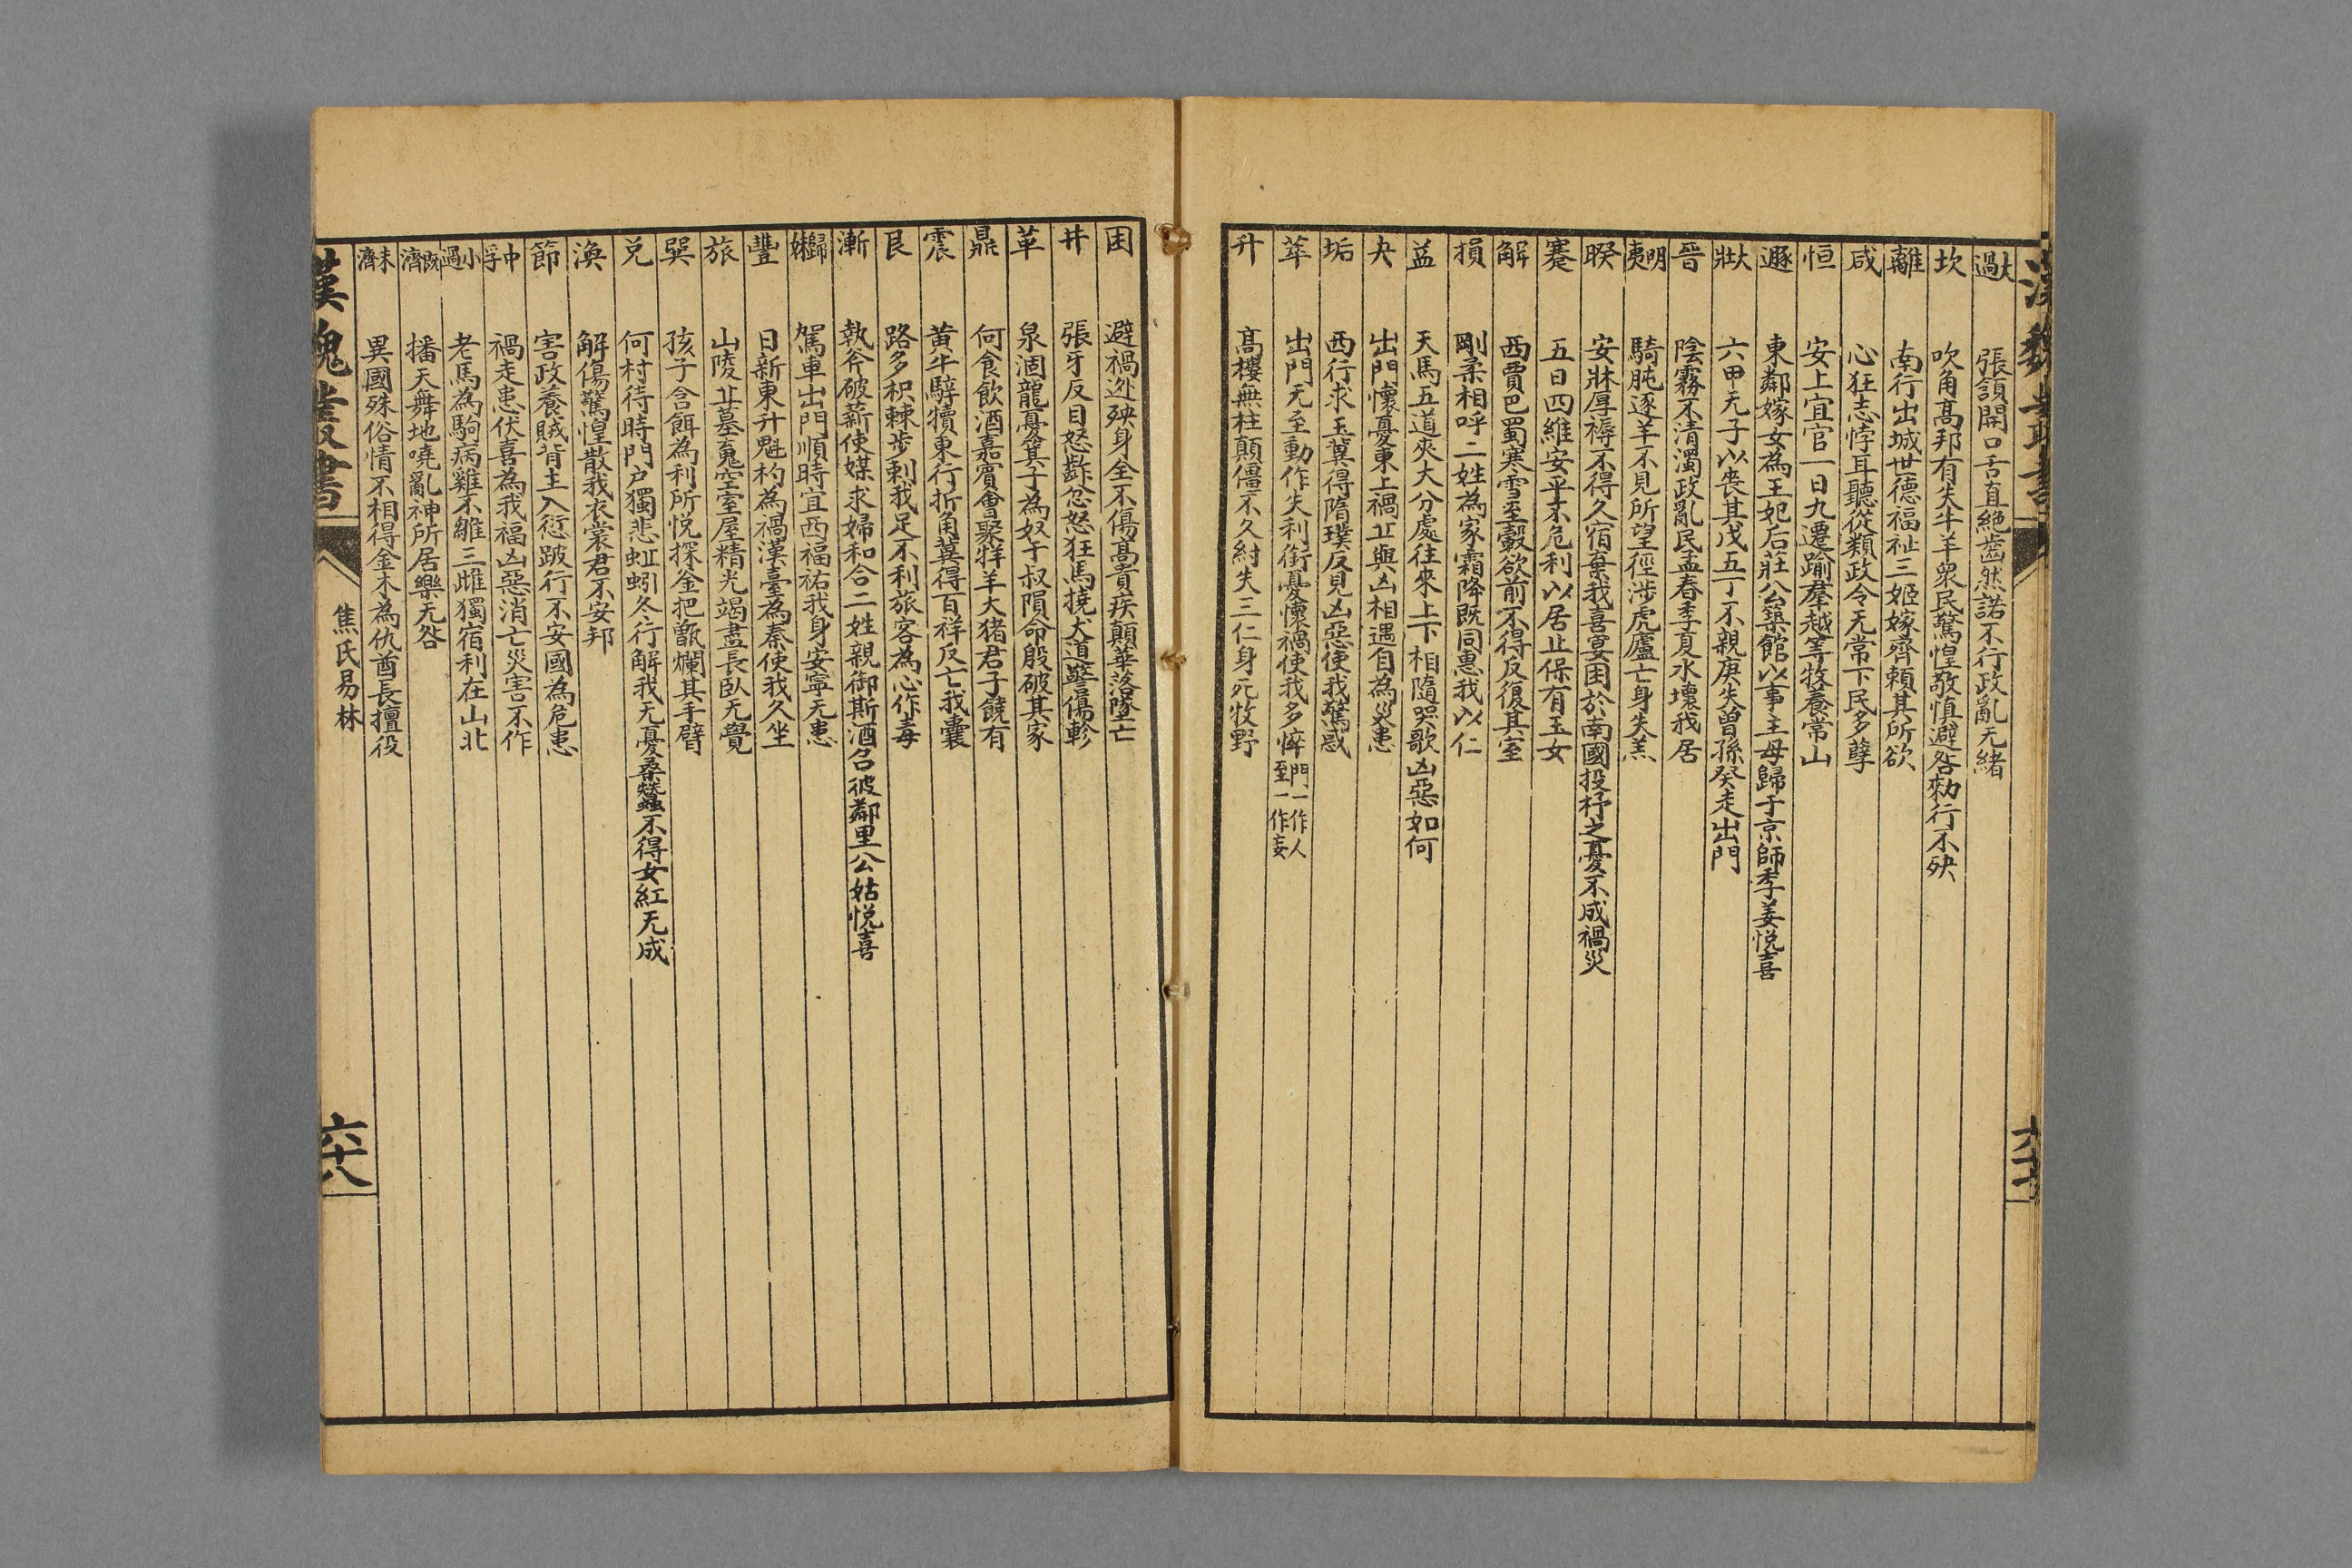 大過 張頷開口舌直絕齒然諾不行政亂无緒
坎 吹角高邦有失牛羊眾民驚惶敬慎避咎勑行不殃
離 南行出城世德福祉三姬嫁齊賴其所欲
咸 心狂志悖耳聽從類政令无常下民多孽
恒 安上宜官一日九遷踰羣越等牧養常山
遯 東鄰嫁女為王妃后莊公築館以事主母歸于京師季姜悅喜
大壯 六甲无子以喪其戊五丁不親庚失曾孫癸走出門
晉 陰霧不清濁政亂民孟春季夏水壞我居
明夷 騎肫逐羊不見所望徑涉虎廬亡身失羔
睽 安牀厚褥不得久宿棄我喜宴困於南國投杼之憂不成禍災
蹇 五日四維安平不危利以居止保有玉女
解 西賈巴蜀寒雪至轂欲前不得反復其室
損 剛柔相呼二姓為家霜降既同惠我以仁
益 天馬五道夾大分處往來上下相隨哭歌凶惡如何
夬 出門懷憂東上禍丘與凶相遇自為災患
垢 西行求玉冀得隋璞反見凶惡使我驚惑
萃 出門无至動作失利銜憂懷禍使我多悴 門一作人至一作妄
升 高樓無柱顛僵不久紂失三仁身死牧野
困 避禍迯殃身全不傷高貴疾顛華落墜亡
井 張牙反目怒齜忿怒狂馬撓犬道驚傷軫
革 泉涸龍憂箕子為奴干叔隕命殷破其家
鼎 何食飲酒嘉賓會聚牂羊大猪君子饒有
震 黃牛騂犢東行折角冀得百牂反亡我囊
艮 路多枳棘步刺我足不利旅客為心作毒
漸 執斧破薪使媒求婦和合二姓親御斯酒召彼鄰里公姑悅喜
歸妹 駕車出門順時宜西福祐我身安寧无患
豐 日新東升魁杓為禍漢臺為秦使我久坐
旅 山陵丘墓䰟空室屋精光竭盡長臥无覺
巽 孩子含餌為利所悅探釜把甑爛其手臂
兌 何村待時門户獨悲蚯蚓冬行解我无憂桑蠶不得女紅无成
渙 解傷驚惶散我衣裳君不安邦
節 害政養賊背主入愆跛行不安國為危患
中孚 禍走患伏喜為我福凶惡消亡災害不作
小過 老馬為駒病雞不雛三雌獨宿利在山北
既濟 播天舞地嘵亂神所居樂无咎
未濟 異國殊俗情不相得金木為仇酋長擅役
漢魏叢書 焦氏易林 六十八